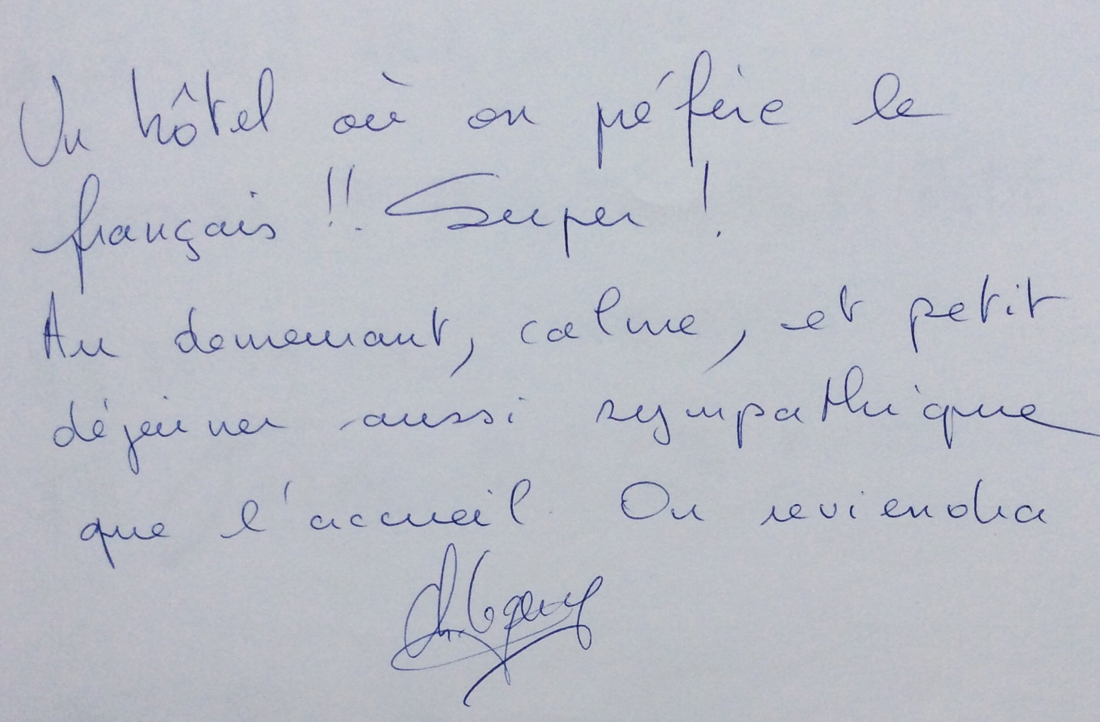 Un hôtel où on préfère le
français !! Super !
Au demeurant, calme, et petit
déjeuner aussi sympathique
que l'accueil. On reviendra